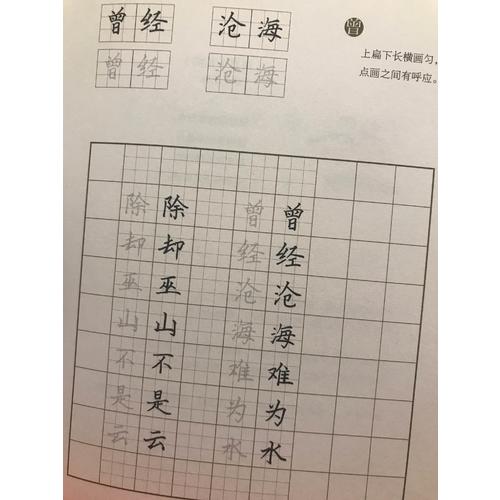 曾经 沧海
曾经 沧海
曾
上扁下长横画匀，
点画之间有呼应。
曾经沧海难为水
曾经沧海难为水
除却巫山不是云
除却巫山不是云